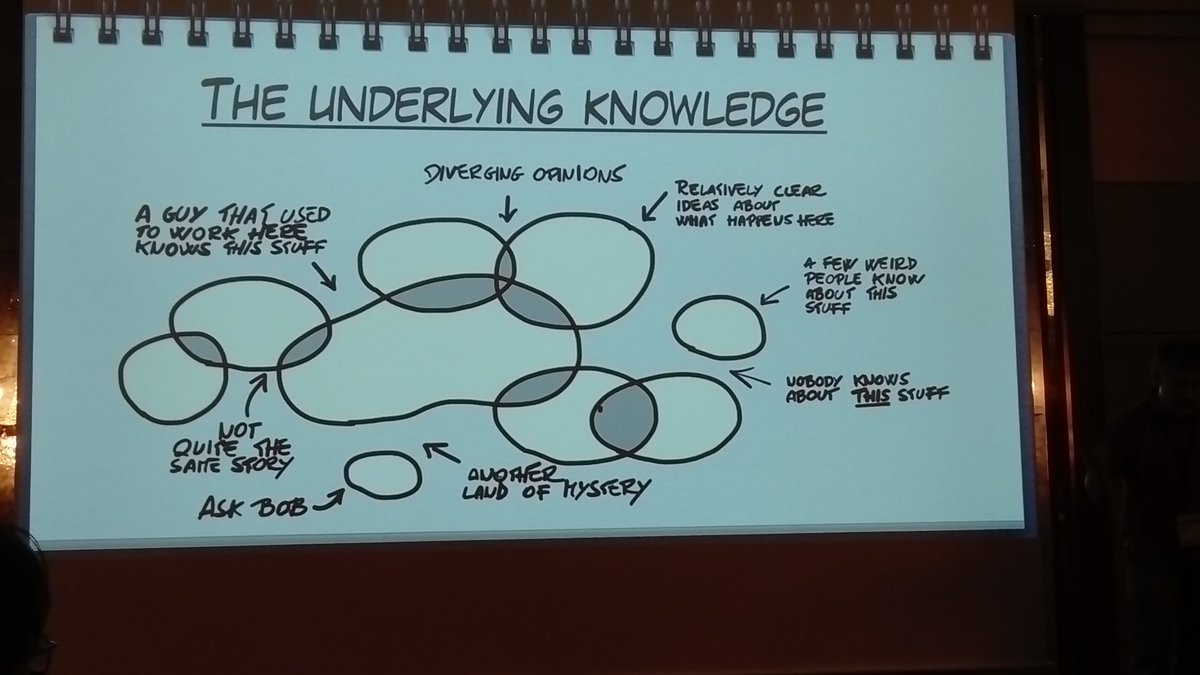 THE UNDERLYING KNOWLEDGE
DIVERGING OPINIONS
RELATIVELY CLEAR
IDEAS ABOUT
WHAT HAPPENS HERE
A GUY THAT USED
TO WORK HERE
KNOWS THIS STUFF
A FEW WEIRD
PEOPLE KNOW
ABOUT THIS
STUFF
NOBODY KNOWS
ABOUT THIS STUFF
NOT
QUITE THE
SAME STORY
ANOTHER
LAND OF MYSTERY
ASK BOB